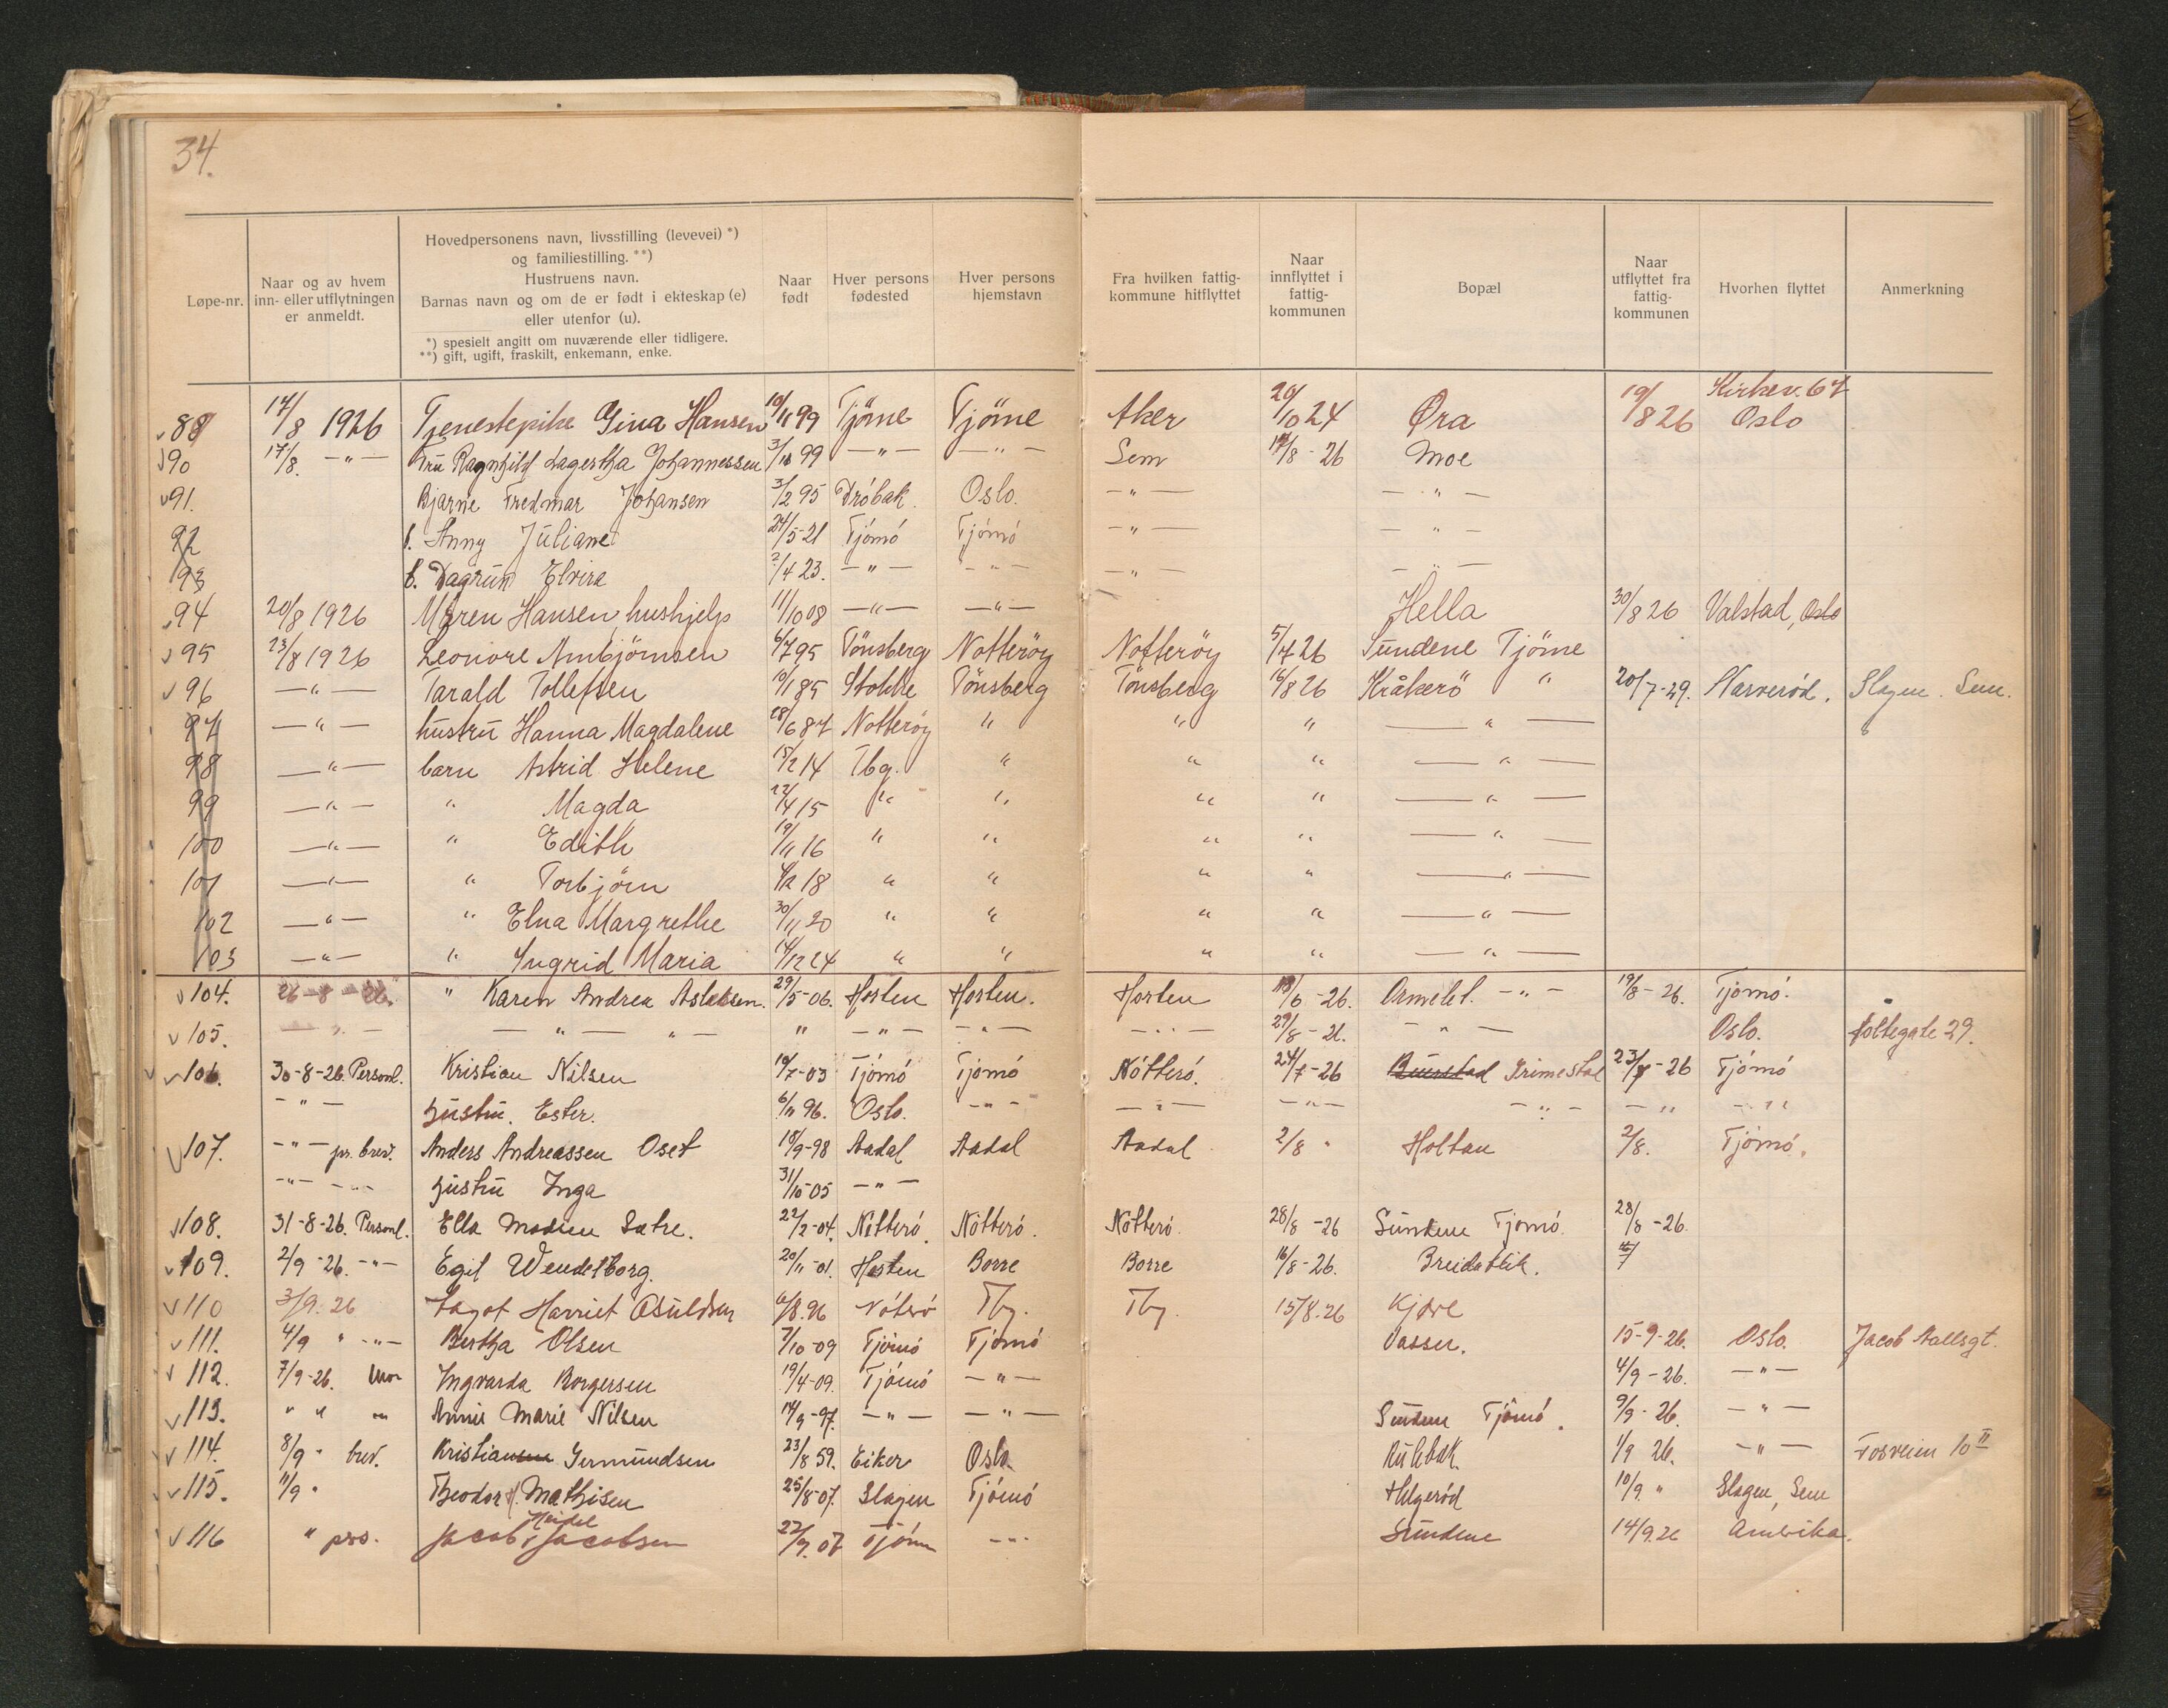 34.
Løpe-nr.
Naar og av hvem
inn- eller utflytningen
er anmeldt.
Hovedpersonens navn, livsstilling (levevei) *)
og familiestilling. **)
Hustruens navn.
Barnas navn og om de er født i ekteskap (e)
eller utenfor (u).
*) spesielt angitt om nuværende eller tidligere.
**) gift, ugift, fraskilt, enkemann, enke.
Naar
født
Hver persons
fødested
Hver persons
hjemstavn
Fra hvilken fattig-
kommune hitflyttet
Naar
innflyttet i
fattig-
kommunen
Bopæl
Naar
utflyttet fra
fattig-
kommunen
Hvorhen flyttet
Anmerkning
Kirkev. 67
17/8 1926 Tjenestepike Gina Hansen 99 Tjöme Tjöme Aker 20/10 24 Øra 19/8 26 Oslo
90 17/8. -"- Fru Ragnhild Lagertha Johannessen 3/10 99 -"- -"- Sem 26 Moe
91. Bjarne Fredmar Johansen 3/2 95 Dröbak. Oslo. -"- -"-
92 Anny Juliane 24/5-21 Tjömö Tjömö -"- -"-
93 Dagrun Elvira 2/4 23. -"- -"- -"- -"-
94 20/8 1926 Maren Hansen, hushjelp 11/10 08 -"- -"- Hella 30/8 26 Valstad, Oslo
95 23/8 1926 Leonore Arnbjörnsen 6/7 95 Tönsberg Nötteröy Nötteröy 26 Sundene Tjöme
96 -"- Tarald Tollefsen 10/1 85 Stokke Tönsberg Tönsberg 16/8 26 Kråkerö " 20/7-29. Narveröd. Slagen. Sem.
97 -"- hustru Hanna Magdalene 28/6 87 Nötteröy " " " -"-
98 -"- barn Astrid Helene 14 Tbg. " " " -"-
99 -"- " Magda 15 " " " " -"-
100 -"- " Edith 19/11 16 " " " " -"-
101 -"- " Torbjörn 18 " " " " -"-
102 -"- " Elna Margrethe 30/11 20 " " " " -"-
103 -"- " Ingrid Maria 14/12 24 " " " " -"-
104. 26-8-26. " Karen Andrea Aslaksen. 29/5-06. Horten Horten. Horten 26. Ormelet. -"- 19/8-26. Tjömö.
105. -"- -"- "- " -"- -"- -"- 29/8-26. -"- Oslo. Holtegate 29.
106. 30-8-26. Personl. Kristian Nilsen 03 Tjömö Tjömö Nötterö. 24/7-26 Grimestad 26 Tjömö
-"- Hustru. Ester. 96. Oslo. -"- -"- -"- -"- -"- -"-
107. -"- pr. brev. Anders Andreassen Oset 18/9-98 Aadal Aadal Aadal 2/8 " Holtan 2/8. Tjömö.
-"- -"- Hustru Inga 31/10-05 -"-
108. 31-8-26. Personl. Ella 22/2-04. Nötterö. Nötterö. Nötterö. 28/8-26 Sundene Tjömö. 28/8-26.
109. 2/9-26. -"- Egil Wendelborg. 20/11-01. Horten Borre Borre 16/8-26. Breidablik.
110 3/9. 26 Harriet 96 Nöterö Tbg. Tbg. 15/8.26 Kjære
111. 4/9 " -"- Bertha Olsen 7/10-09 Tjömö Tjömö Vasser. 15-9-26. Oslo. Jacob Aallsgt.
112. 7/9-26. Mor Ingvarda Borgersen 19/4-09. Tjömö -"- 4/9-26. -"-
113. " " " Annie Marie Nilsen 14/9-97. -"- -"- Sundene Tjömö. 9/9-26. -"-
114. 8/9 " brev. Germundsen 23/8 59. Eiker Oslo. Rulebak. 1/9 26. -"- Fosveien 10 II
115. 11/9 " Theodor H. Mathisen 25/8-07. Slagen Tjömö Helgeröd 10/9. " Slagen, Sem
116 " prs. Jacob Jacobsen 07 Tjöm -"- Sundene 14/9.26 Amerika.